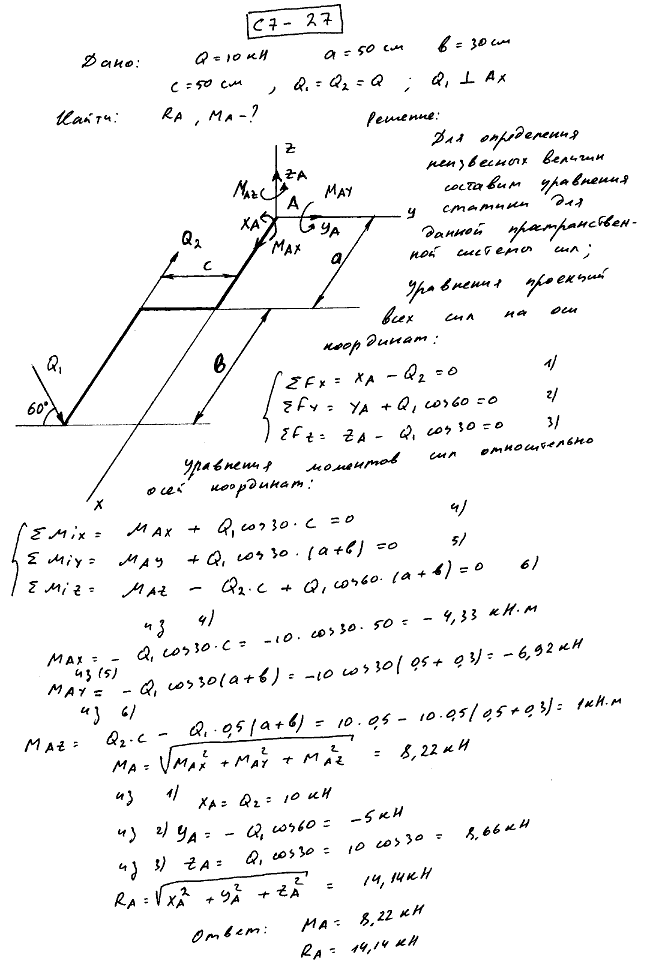 С7-27
Дано: Q=10кН a=50см в=30см
c=50см, Q₁=Q₂=Q ; Q₁ ⊥ Ax
Найти: RA, MA-? Решение:
Для определения
неизвесных величин
составим уравнения
статики для
данной пространствен-
ной системы сил;
Уравнения проекций
всех сил на оси
координат:
Z
ZA
MAZ
A
MAY
У
XA
YA
MAX
Q₂
c
a
в
Q₁
60°
X
ΣFx = XA - Q₂ = 0 1)
ΣFy = YA + Q₁ cos60 = 0 2)
ΣFz = ZA - Q₁ cos30 = 0 3)
Уравнения моментов сил относительно
осей координат:
ΣMix = MAX + Q₁cos30·c = 0 4)
ΣMiy = MAY + Q₁cos30·(a+в) = 0 5)
ΣMiz = MAZ - Q₂·c + Q₁cos60·(a+в) = 0 6)
из 4)
MAX = - Q₁cos30·c = -10·cos30·50 = -4,33 кН·м
из (5)
MAY = - Q₁cos30(a+в) = -10cos30(0,5+0,3) = -6,92кН
из 6)
MAZ = Q₂·c - Q₁·0,5(a+в) = 10·0,5 - 10·0,5(0,5+0,3) = 1кН·м
MA = √MAX² + MAY² + MAZ² = 8,22кН
из 1) XA = Q₂ = 10кН
из 2) YA = - Q₁cos60 = -5кН
из 3) ZA = Q₁cos30 = 10cos30 = 8,66кН
RA = √XA² + YA² + ZA² = 14,14кН
Ответ: MA = 8,22кН
RA = 14,14кН